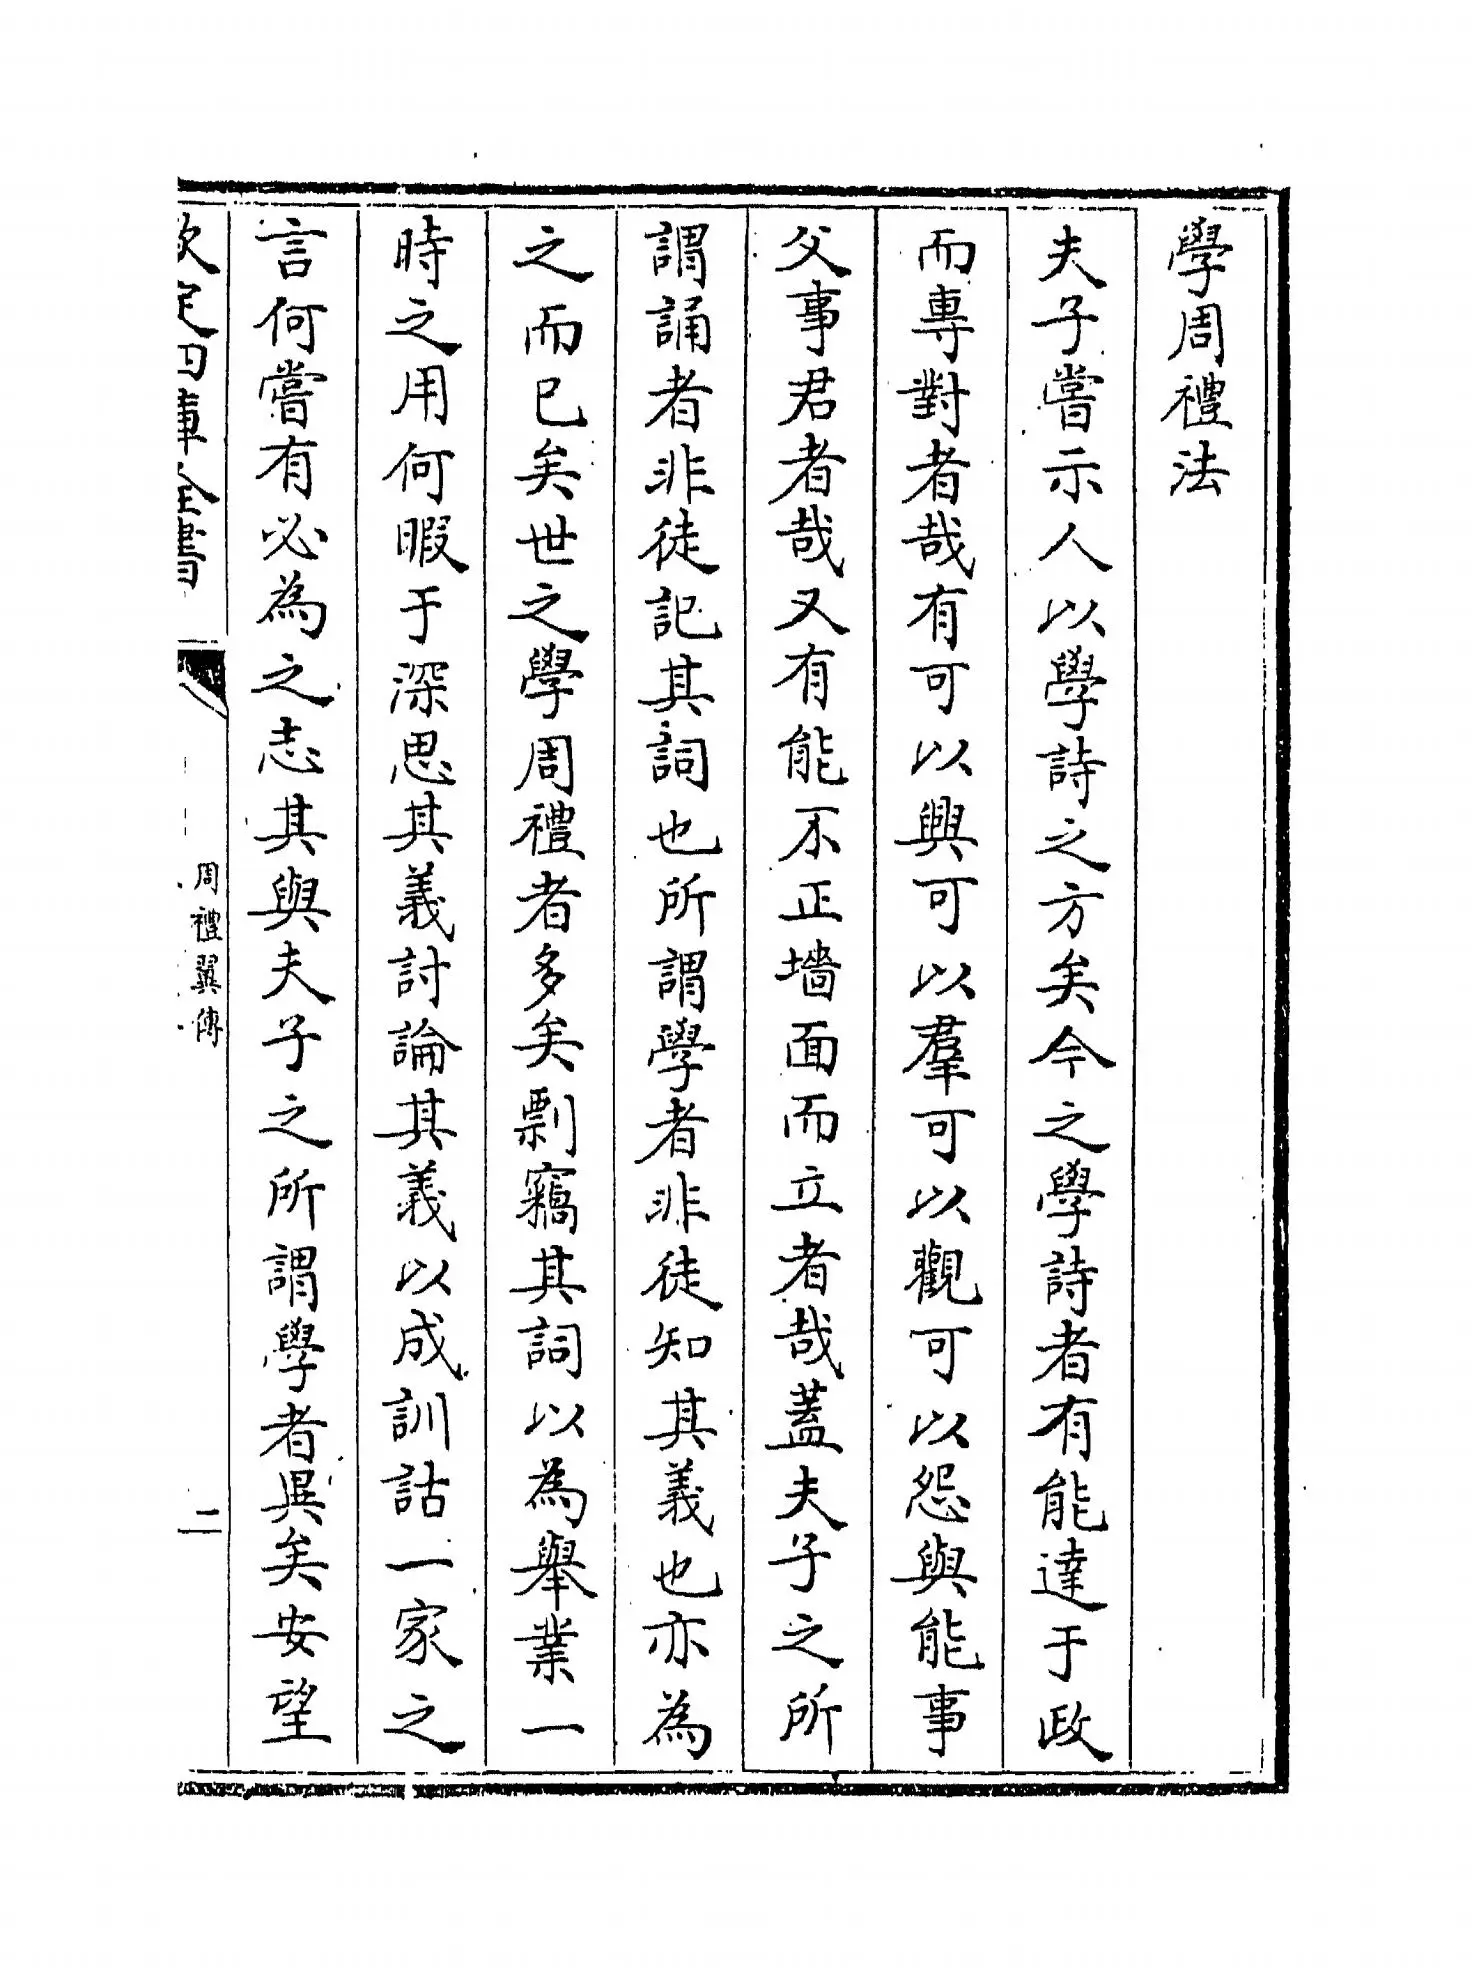 學周禮法
夫子嘗示人以學詩之方矣今之學詩者有能達于政
而專對者哉有可以興可以羣可以觀可以怨與能事
父事君者哉又有能不正墻面而立者哉蓋夫子之所
謂誦者非徒記其詞也所謂學者非徒知其義也亦為
之而已矣世之學周禮者多矣剽竊其詞以為舉業一
時之用何暇于深思其義討論其義以成訓詁一家之
言何嘗有必為之志其與夫子之所謂學者異矣安望
欽定四庫全書
周禮翼傳
二